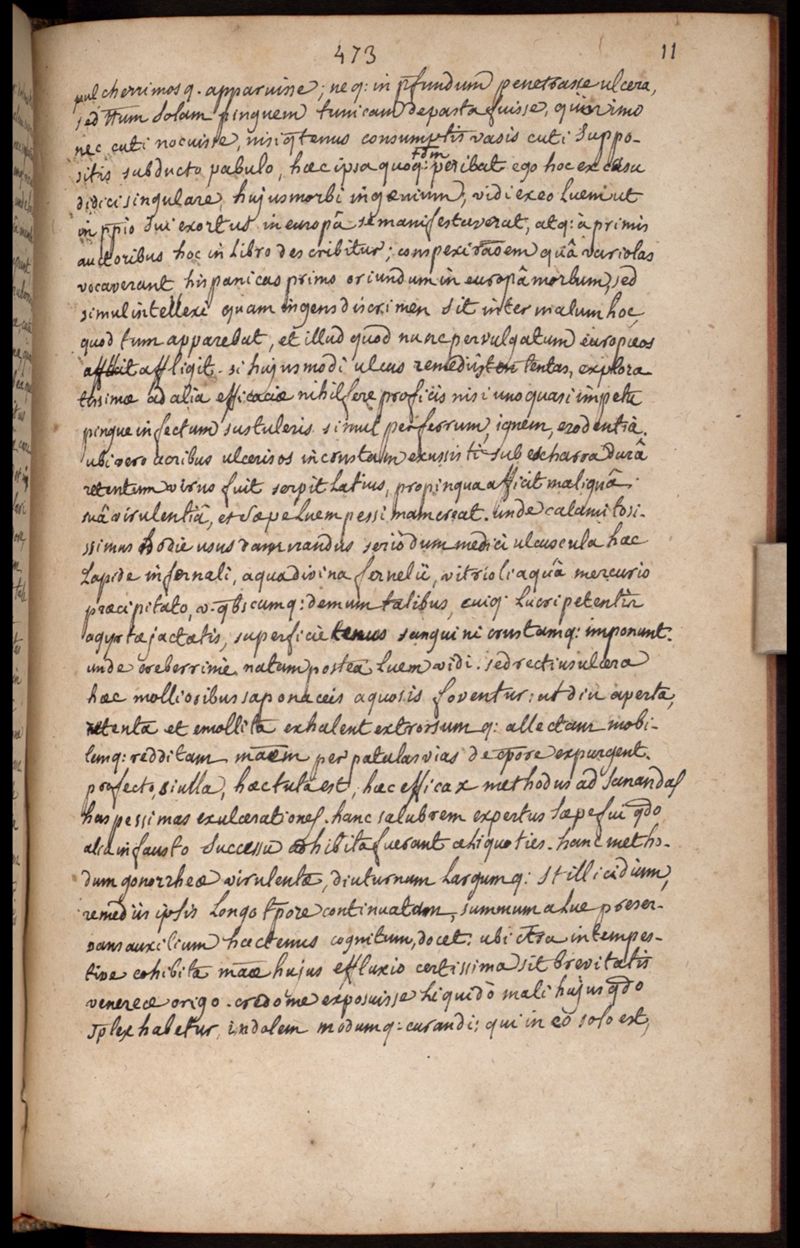 473 11
pulcherrimos q. apparuisse; neq: in pfundum penetrasse ulcera,
sed ttum solam pinguem tunicam depasta fuisse, quinimo
nec cuti nocuisse, nisi qtenus consumptis vasis cuti suppo-
sitis subducto pabulo, hæc ipsa quoq: peribat ego hoc ex casu
didici singulare hujus morbi ingenium, vidi ex eo luem ut
in ppio sui exortus in europâ se manifestaverat, atq: à primis
auctoribus hoc in libro describitur; compexi eâ variolas
vocaverant hispanicas primo oriundum in europâ morbum, sed
simul intellexi quam ingens discrimen sit inter malum hoc,
quod tum apparebat, et illud quod nunc pervulgatum europæos
affligit. si hujusmodi ulcus remediis tentas, explora
tissimæ ad alia efficaciæ nihil fere proficis nisi uno quasi impetu
pingue infectum sustuleris simul per ferrum, ignem, erodentiâ.
ubi vero acribus ulceris os in crustam exussisti sub escharra durâ
retentum virus fuit serpit latius, propinqua afficit maliquâ
suâ virulentiâ, et sæpe luem pessimam creat. unde calamitosi-
ssimus hodie usus damnandus serio dum medici ulcuscula hæc
lapide infernali, aqua divina fernelii, vitrioli aquâ mercurio
præcipitato, v. qbscumq: demum talibus, cuiq: lucripetentûr
agyrtæ jactatis, superficie tenus sanguini crustamq: imponunt.
unde creberrime natum postea luem vidi. sed rectius ulcera
hæc mollioribus saponaceis aquosis foventur: ut diu aperta,
retenta et emollita exhalent extrorsum q: allectam mobi-
lemq: redditam maem per patulas vias de cpore expurgent.
profecto, si ulla, hæc tuta est, hæc efficax methodus ad sanandas
has pessimas exulcerationes. hanc salubrem expertus sæpe fui qdo
alia infausto successu adhibita fuerant aliquoties. hanc metho-
dum gonorrheæ virulentæ, diuturnum largumq: stillicidium,
remediis ipsis longo tpore continuatum, summum a lue preser-
vans auxilium hactenus cognitum, docet: ubi ctra intempes-
tive cohibita maæ hujus effluxio certissima sit brevitatis
venereæ origo. credo me exposuisse liquidò mali hujus qdo
splex habetur, indolem modumq: curandi; qui in eo solo est,